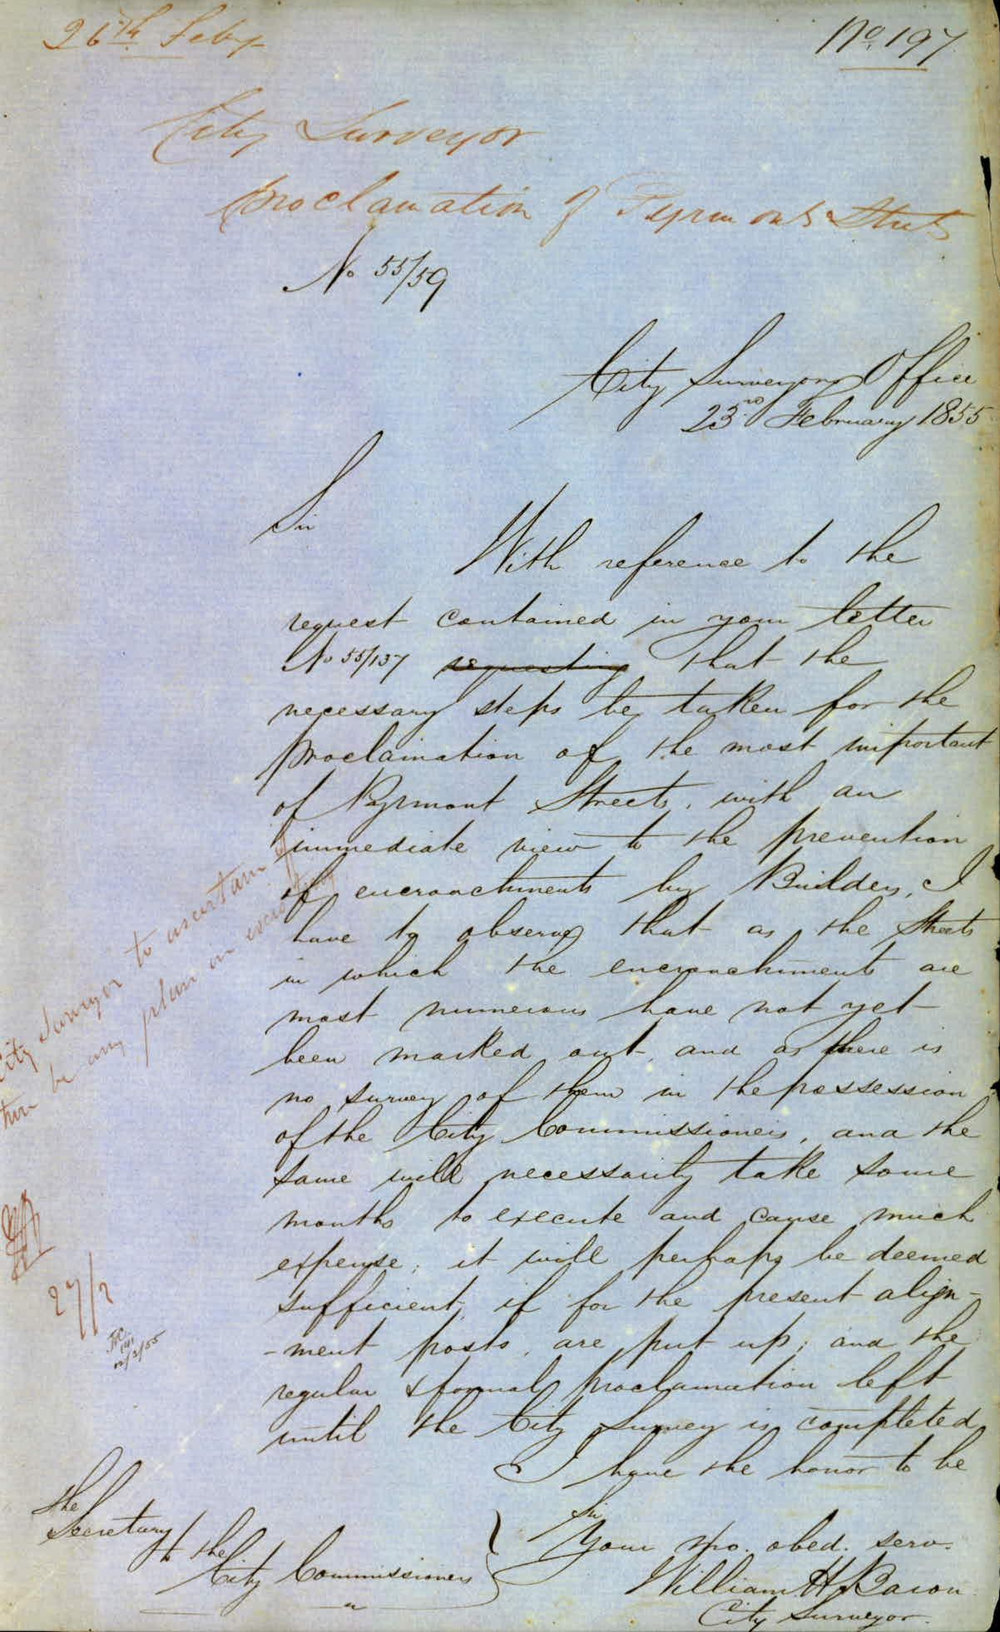 26th Feby
No 197
City Surveyor
Proclamation of Pyrmont Streets
No 55/59
City Surveyors Office
23rd February 1855
Sir
With reference to the
request contained in your letter
No 55/137 requesting that the
necessary steps be taken for the
proclamation of the most important
of Pyrmont Streets, with an
immediate view to the prevention
of encroachments by Builders, I
have to observe that as the Streets
in which the encroachments are
most numerous have not yet
been marked out, and as there is
no survey of them in the possession
of the City Commissioners, and the
same will necessarily take some
months to execute and cause much
expense; it will perhaps be deemed
sufficient, if for the present align-
-ment posts are put up; and the
regular & formal proclamation left
until the City Survey is completed
I have the honor to be
Sir
Your mo. obed. serv.
William H Bacon
City Surveyor
The
Secretary
to the
City Commissioners
City Surveyor to ascertain if
be any plan in
27/2